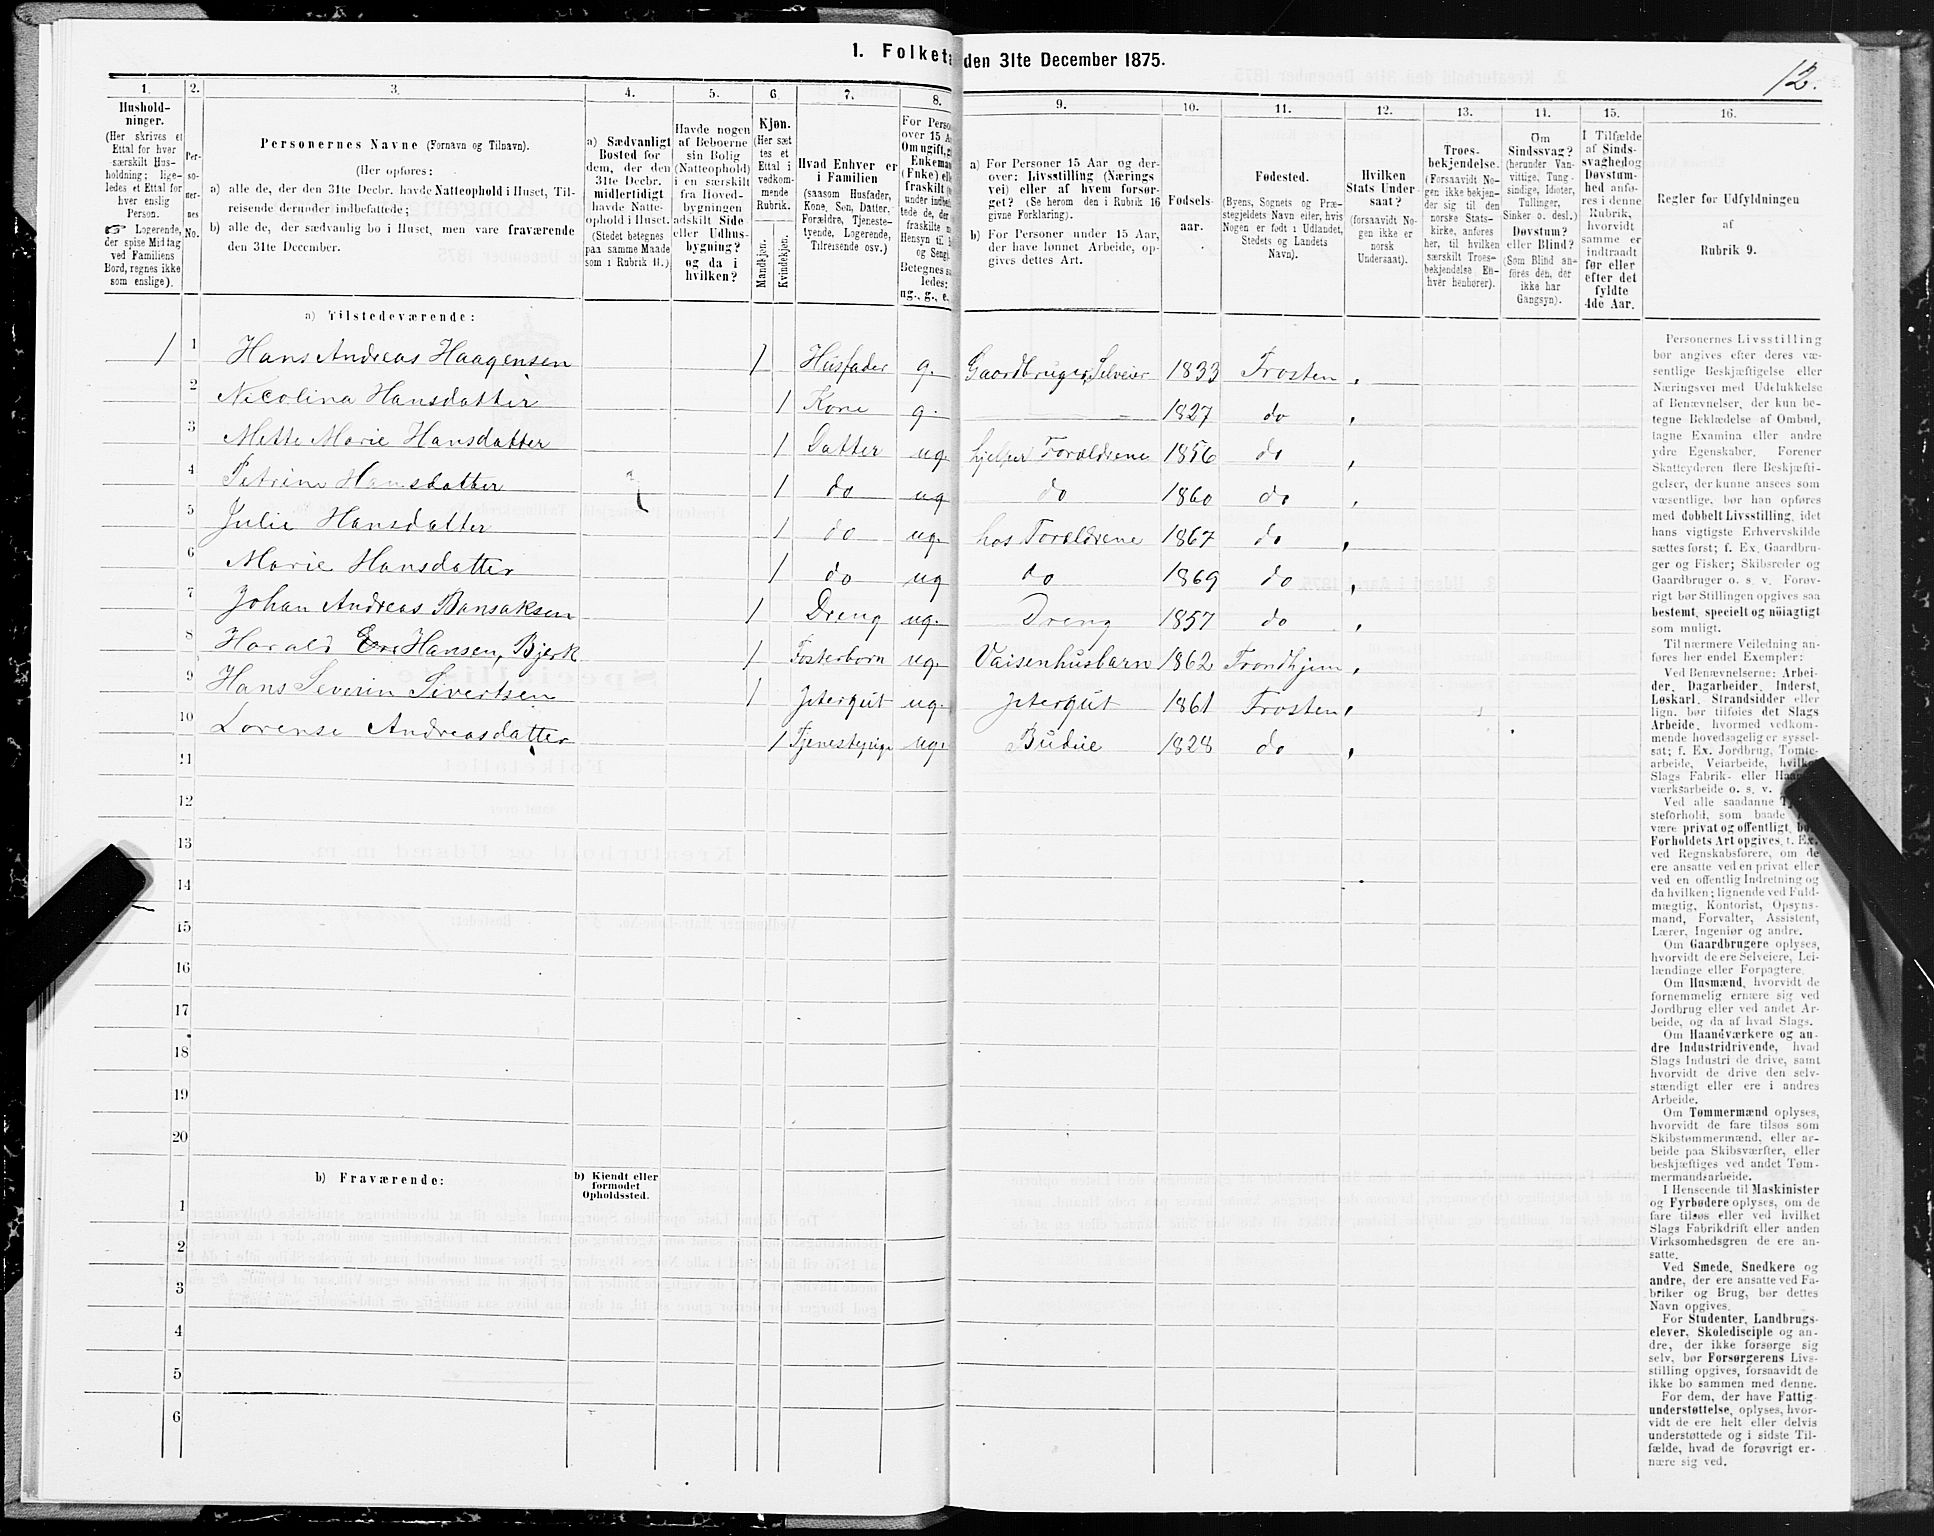 1. Folketæ den 31te December 1875.
12.
1. 2. 3. 4. 5. 6. 7. 8. 9. 10. 11. 12. 13. 14. 15. 16.
Hushold-
ninger.
(Her skrives et
Ettal for hver
særskilt Hus-
holdning; lige-
ledes et Ettal for
hver enslig
Person.
☞ Logerende,
der spise Middag
ved Familiens
Bord, regnes ikke
som enslige).
Per-
so-
ner-
nes
No.
Personernes Navne (Fornavn og Tilnavn).
(Her opføres:
a) alle de, der den 31te Decbr. havde Natteophold i Huset, Til-
reisende derunder indbefattede;
b) alle de, der sædvanlig bo i Huset, men vare fraværende
den 31te December.
a) Sædvanligt
Bosted for
dem, der den
31te Decbr.
midlertidigt
havde Natte-
ophold i Huset.
(Stedet betegnes
paa samme Maade
som i Rubrik 11.)
Havde nogen
af Beboerne
sin Bolig
(Natteophold)
i en særskilt
fra Hoved-
bygningen
adskilt Side
eller Udhus-
bygning?
og da i
hvilken?
Kjøn.
(Her sæt
tes et
Ettal i
vedkom-
mende
Rubrik.
Mandkjøn.
Kvindekjøn.
Hvad Enhver er
i Familien
(saasom Husfader,
Kone, Søn, Datter,
Forældre, Tjeneste-
tyende, Logerende,
Tilreisende osv.)
For Perso
over 15 A
Om ugift, g
Enkeman
(Enke) ell
fraskilt
under indbe
tede de, der
fraskilte
Hensyn til
og Seng).
Betegnes sa
ledes:
ug., g., e.,
a) For Personer 15 Aar og der-
over: Livsstilling (Nærings
vei) eller af hvem forsør-
get? (Se herom den i Rubrik 16
givne Forklaring).
b) For Personer under 15 Aar,
der have lønnet Arbeide, op-
gives dettes Art.
Fødsels-
aar.
Fødested.
(Byens, Sognets og Præ-
stegjeldets Navn eller, hvis
Nogen er født i Udlandet,
Stedets og Landets
Navn).
Hvilken
Stats Under-
saat?
(forsaavidt No-
gen ikke er
norsk
Undersaat).
Troes-
bekjendelse.
(Forsaavidt No-
gen ikke bekjen-
der sig til den
norske Stats-
kirke, anføres
her, til hvilken
særskilt Troes-
bekjendelse En-
hver henhører).
Om
Sindssvag?
(herunder Van-
vittige, Tung-
sindige, Idioter,
Tullinger,
Sinker o. desl.)
Døvstum?
eller Blind?
(Som Blind an-
føres den, der
ikke har
Gangsyn).
I Tilfælde
af Sinds-
svaghed og
Døvstum-
hed anfø-
res i denne
Rubrik,
hvorvidt
samme er
indtraadt
før eller
efter det
fyldte
4de Aar.
Regler for Udfyldningen
af
Rubrik 9.
a) Tilstedeværende:
1 1 Hans Andreas Haagensen 1 Husfader g. Gaardbruger, Selveier 1833 Frosten
2 Nicolina Hansdatter 1 Kone g. 1827 do
3 Mette Marie Hansdatter 1 Datter ug. hjelper Forældrene 1856 do
4 Petrine Hansdatter 1 do ug do 1860 do
5 Julie Hansdatter 1 do ug. hos Forældrene 1867 do
6 Marie Hansdatter 1 do ug do 1869 do
7 Johan Andreas Bansaksen 1 Dreng ug. Dreng 1857 do
8 Harald Hansen, Bjerk 1 Fosterbarn ug. Vaisenhusbarn 1862 Trondhjem
9 Hans Severin Sivertsen 1 Jetergut ug. Jetergut 1861 Frosten
10 Lorense Andreasdatter 1 Tjenestepige ug. Budeie 1828 do
11
12
13
14
15
16
17
18
19
20
b) Fraværende:
b) Kjendt eller
formodet
Opholdssted.
1
2
3
4
5
6
Personernes Livsstilling
bør angives efter deres væ-
sentlige Beskjæftigelse eller
Næringsvei med Udelukkelse
af Benævnelser, der kun be-
tegne Beklædelse af Ombud,
tagne Examina eller andre
ydre Egenskaber. Forener
Skatteyderen flere Beskjæfti-
gelser, der kunne ansees som
væsentlige, bør han opføres
med dobbelt Livsstilling, idet
hans vigtigste Erhvervskilde
sættes først; f. Ex. Gaardbru-
ger og Fisker; Skibsreder og
Gaardbruger o. s. v. Forøv-
rigt bør Stillingen opgives saa
bestemt, specielt og nöiagtigt
som muligt.
Til nærmere Veiledning an-
føres her endel Exempler:
Ved Benævnelserne: Arbei-
der, Dagarbeider, Inderst,
Løskarl, Strandsidder eller
lign. bør tilføies det Slags
Arbeide, hvormed vedkom-
mende hovedsagelig er syssel-
sat; f. Ex. Jordbrug, Tomte-
arbeide, Veiarbeide, hvilket
Slags Fabrik- eller Haand-
værksarbeide o. s. v.
Ved alle saadanne Tje
steforhold, som baade
være privat og offentligt, bør
Forholdets Art opgives, t. Ex.
ved Regnskabsførere, om de
ere ansatte ved en privat eller
ved en offentlig Indretning og
da hvilken; lignende ved Fuld-
mægtig, Kontorist, Opsyns-
mand, Forvalter, Assistent,
Lærer, Ingeniør og andre.
Om Gaardbrugere oplyses,
hvorvidt de ere Selveiere, Lei-
lændinge eller Forpagtere.
Om Husmænd, hvorvidt de
fornemmelig ernære sig ved
Jordbrug eller ved andet Ar-
beide, og da af hvad Slags.
Om Haandværkere og an-
dre Industridrivende, hvad
Slags Industri de drive, samt
hvorvidt de drive den selv-
stændigt eller ere i andres
Arbeide.
Om Tømmermænd oplyses,
hvorvidt de fare tilsøs som
Skibstømmermænd, eller ar-
beide paa Skibsværfter, eller
beskjæftiges ved andet Tøm-
mermandsarbeide.
I Henseende til Maskinister
og Fyrbødere oplyses, om de
fare tilsøs eller ved hvilket
Slags Fabrikdrift eller anden
Virksomhedsgren de ere an-
satte.
Ved Smede, Snedkere og
andre, der ere ansatte ved Fa-
briker og Brug, bør dettes
Navn opgives.
For Studenter, Landbrugs-
elever, Skoledisciple og an-
dre, der ikke forsørge sig
selv, bør Forsørgerens Livs-
stilling opgives, forsaavidt de
ikke bo sammen med denne.
For dem, der have Fattig-
understøttelse, oplyses, hvor-
vidt de ere helt eller delvis
understøttede og i sidste Til-
fælde, hvad de forøvrigt er-
nære sig ved.